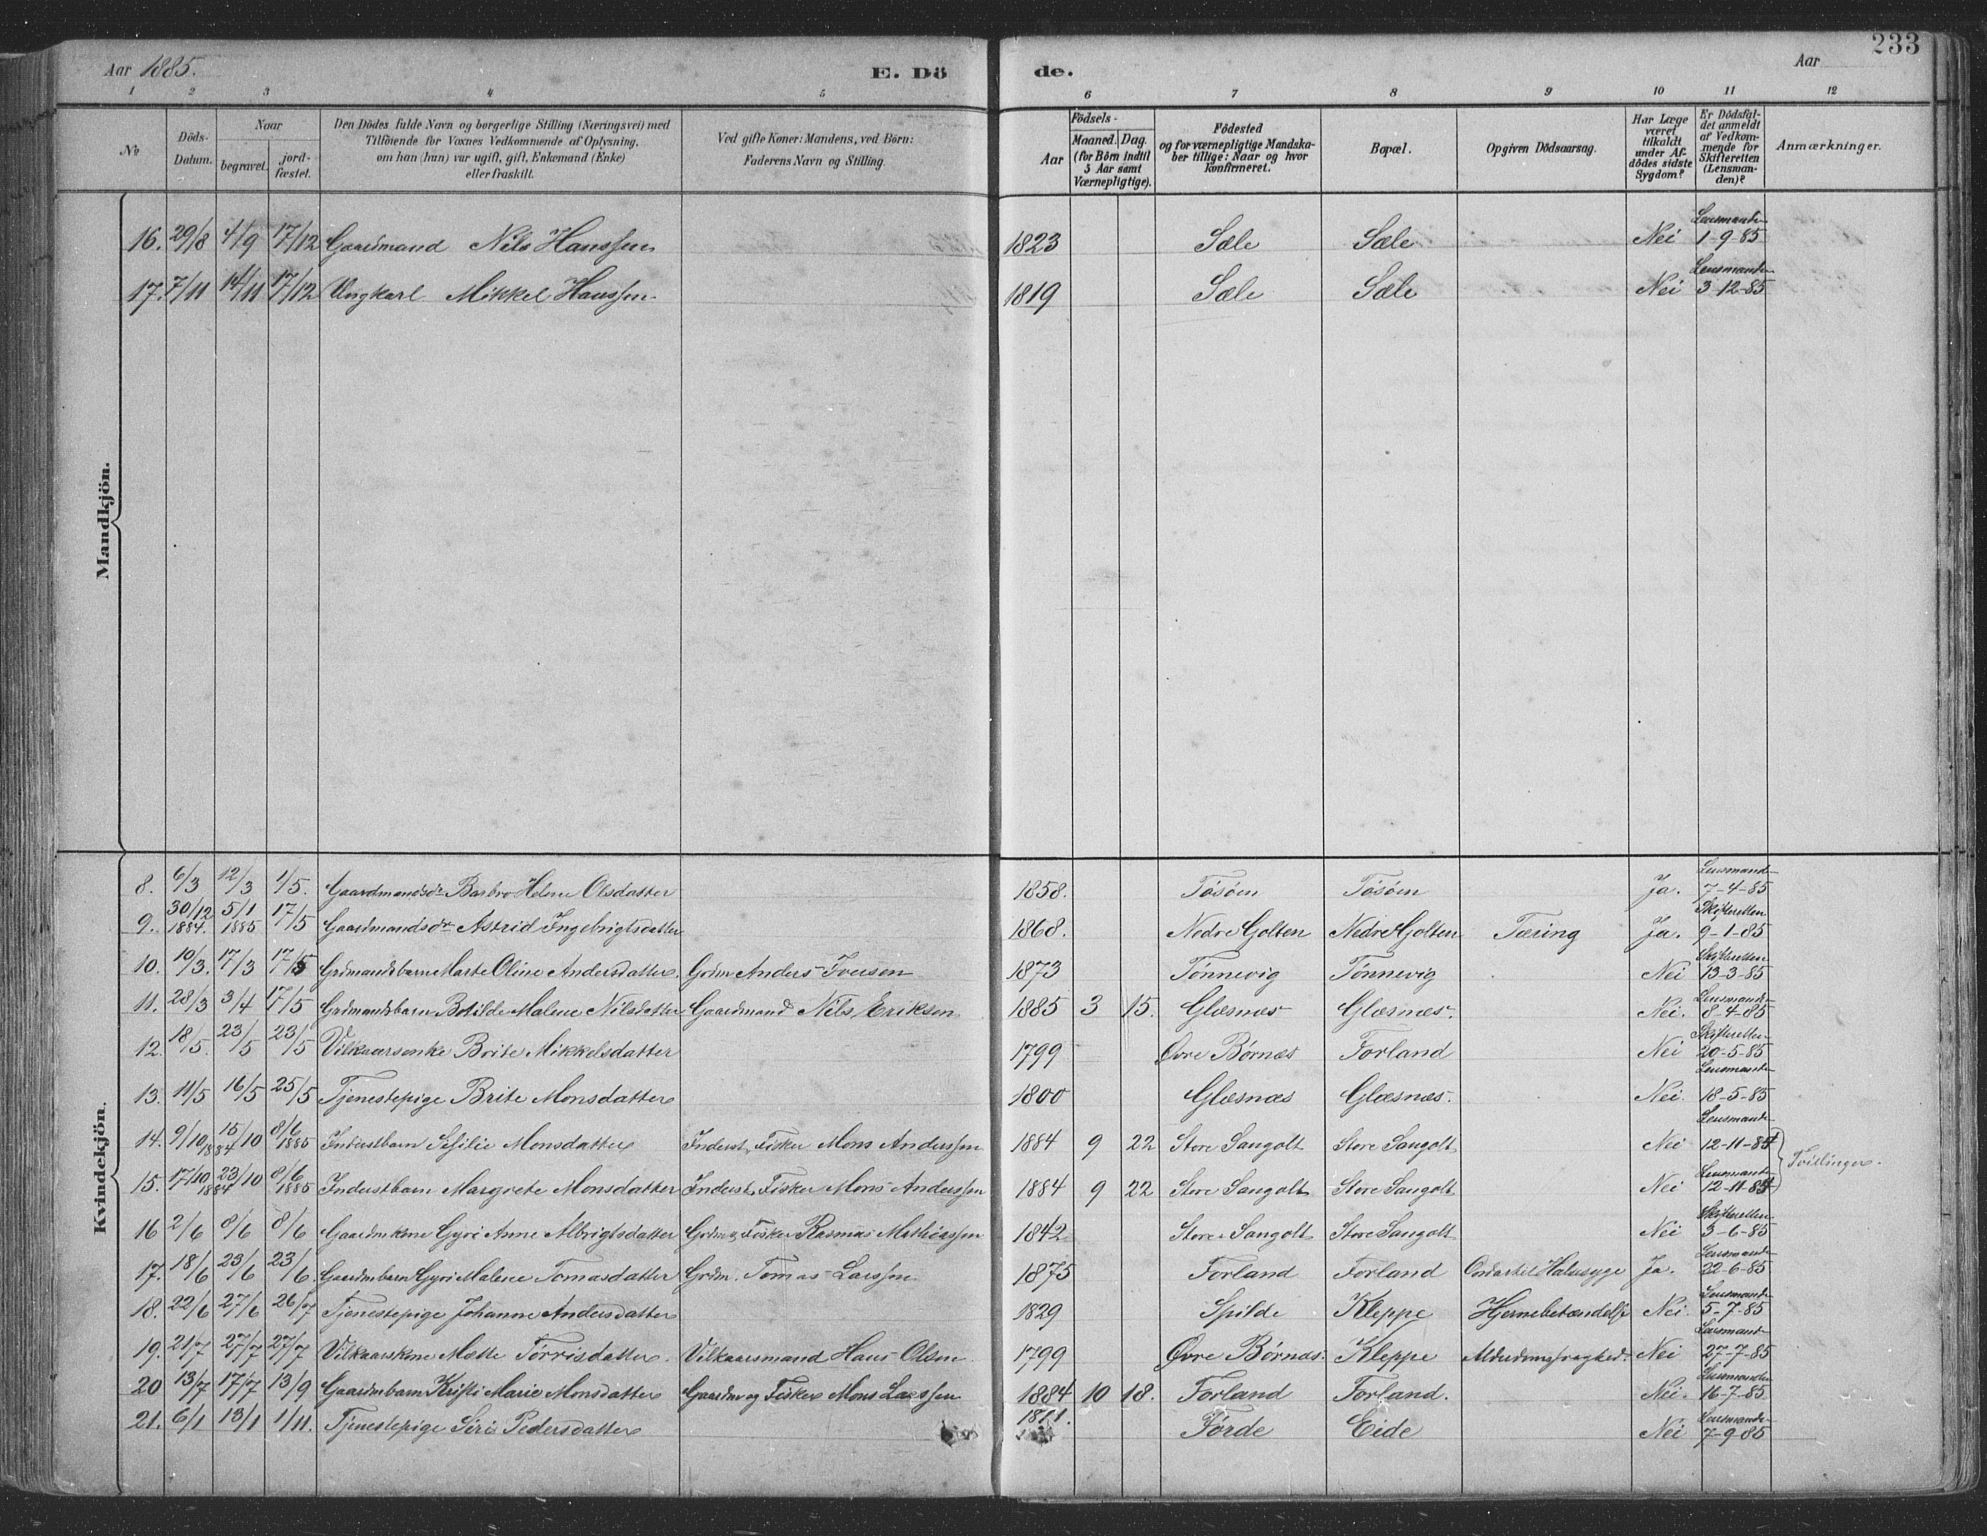 233
Aar 1885.
E. Döde.
Aar
1 2 3 4 5 6 7 8 9 10 11 12
No
Döds-Datum.
Naar
begravet.
jordfæstet.
Den Dödes fulde Navn og borgerlige Stilling (Næringsvei) med
Tilföiende for Voxnes Vedkommende af Oplysning,
om han (hun) var ugift, gift, Enkemand (Enke)
eller fraskilt.
Ved gifte Koner: Mandens, ved Börn:
Faderens Navn og Stilling.
Födsels-
Aar
Maaned. Dag.
(for Börn indtil
5 Aar samt
Værnepligtige).
Födested
og for værnepligtige Mandskaber tillige: Naar og hvor
konfirmeret.
Bopæl.
Opgiven Dödsaarsag.
Har Læge
været
tilkaldt
under Afdödes sidste
Sygdom?
Er Dödsfaldet anmeldt
af Vedkommende for
Skifteretten
(Lensmanden)?
Anmærkninger.
Mandkjön.
16. 29/8 4/9 17/12 Gaardmand Nils Hanssen 1823 Sæle Sæle Nei Lensmanden 1-9-85
17. 7/11 14/11 17/12 Ungkarl Mikkel Hanssen 1819 Sæle Sæle Nei Lensmanden 3-12-85
Kvindekjön.
8. 6/3 12/3 1/5. Gaardmandsdr Barbro Helene Olsdatter 1858. Tösöen Tösöen Ja. Lensmand 7-4-85
9. 30/12 1884. 5/1 1885 17/5 Gaardmandsdr Astrid Ingebrigtsdatter 1868. Nedre Golten Nedre Golten Tæring Ja. Skifteretten 9-1-85
10. 10/3. 17/3 17/5 Grdmandsbarn Marte Oline Andersdatter. Grdm Anders Iversen 1873 Tönnevig Tönnevig Nei Skifteretten 13-3-85
11. 28/3 3/4 17/5 Grdmandsbarn Botilde Malene Nilsdatter Gaardmand Nils Eriksen 1885 3 15. Glæsnæs Glæsnæs. Nei. Lensmand 8-4-85
12. 18/5. 23/5 23/5 Vilkaarsenke Brite Mikkelsdatter 1799 Øvre Børnæs Forland Nei Skifteretten 20-5-85
13. 11/5 16/5 25/5 Tjenestepige Brite Monsdatter 1800 Glæsnæs Glæsnæs. Nei. Lensmand 18-5-85
14. 9/10 1884 15/10 8/6 1885 Inderstbarn Sefilie Monsdatter Inderst, Fisker Mons Anderssen 1884 9 22 Store Sangolt Store Sangolt Nei Lensmand 12-11-84
15. 17/10 1884 23/10 8/6 1885 Inderstbarn Margrete Monsdatter Inderst, Fisker Mons Anderssen 1884 9 22 Store Sangolt Store Sangolt Nei Lensmand 12-11-84 Tvillinger.
16 2/6 8/6 8/6 Gaardmkone Gyri Anne Albrigtsdatter Grdm, Fisker Rasmus Mathiassen 1842 Store Sangolt Store Sangolt Nei Skifteretten 3-6-85
17. 18/6 23/6 23/6 Gaardmbarn Gyri Malene Tomasdatter Grdm. Tomas Larssen 1875 Forland Forland Ondartet Halssyge Ja. Lensmand 22-6-85
18. 22/6 27/6 26/7 Tjenestepige Johanne Andersdatter 1829 Spilde Kleppe Hjernebetændelse Nei. Lensmand 5-7-85
19. 21/7 27/7 27/7 Vilkaarskone Mette Törrisdatter. Vilkaarsmand Hans Olsen 1799 Øvre Børnæs. Kleppe Alderdomssvaghed. Nei Lensmand 27-7-85
20 13/7 17/7 13/9 Gaardmbarn Kristi Marie Monsdatter Gaardm og Fisker Mons Larssen 1884 10 18. Forland Forland. Nei. Lensmanden 16-7-85
21. 6/1 13/1 1/11. Tjenestepige Siri Pedersdatter Förde Eide Nei Lensmand 7-9-85